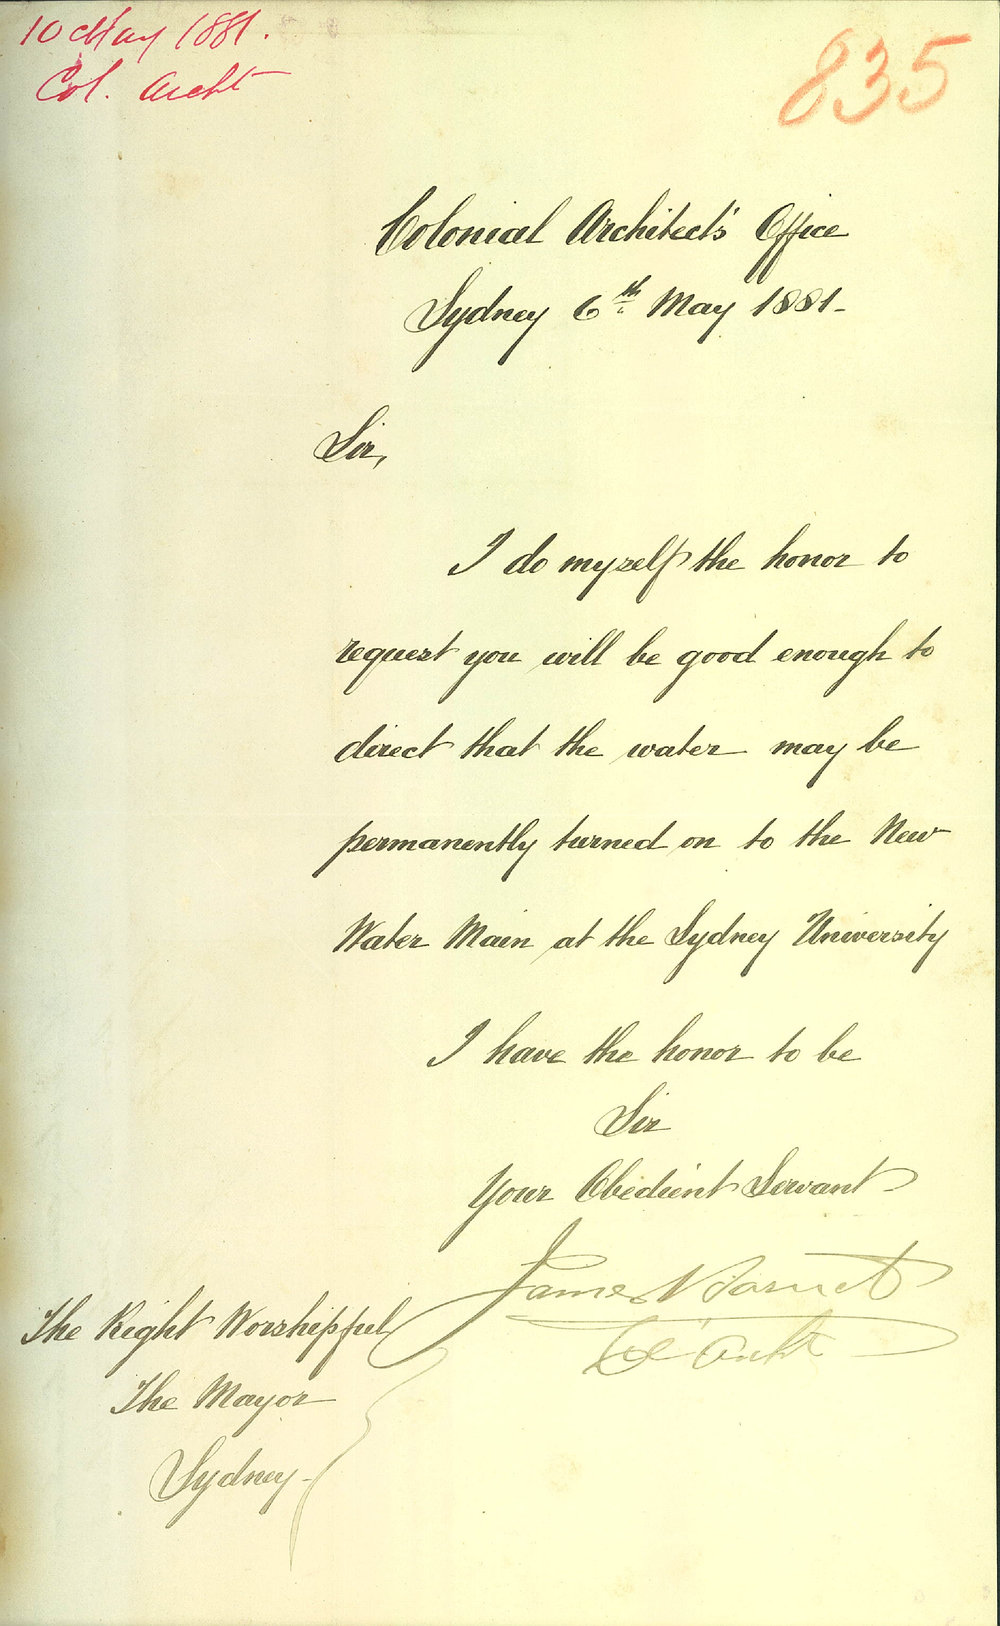 10 May 1881.
Col. Archt
835
Colonial Architect's Office
Sydney 6th May 1881-
Sir,
I do myself the honor to
request you will be good enough to
direct that the water may be
permanently turned on to the New
Water Main at the Sydney University
I have the honor to be
Sir
Your Obedient Servant
James Barnet
Col Archt
The Right Worshipful
The Mayor
Sydney-